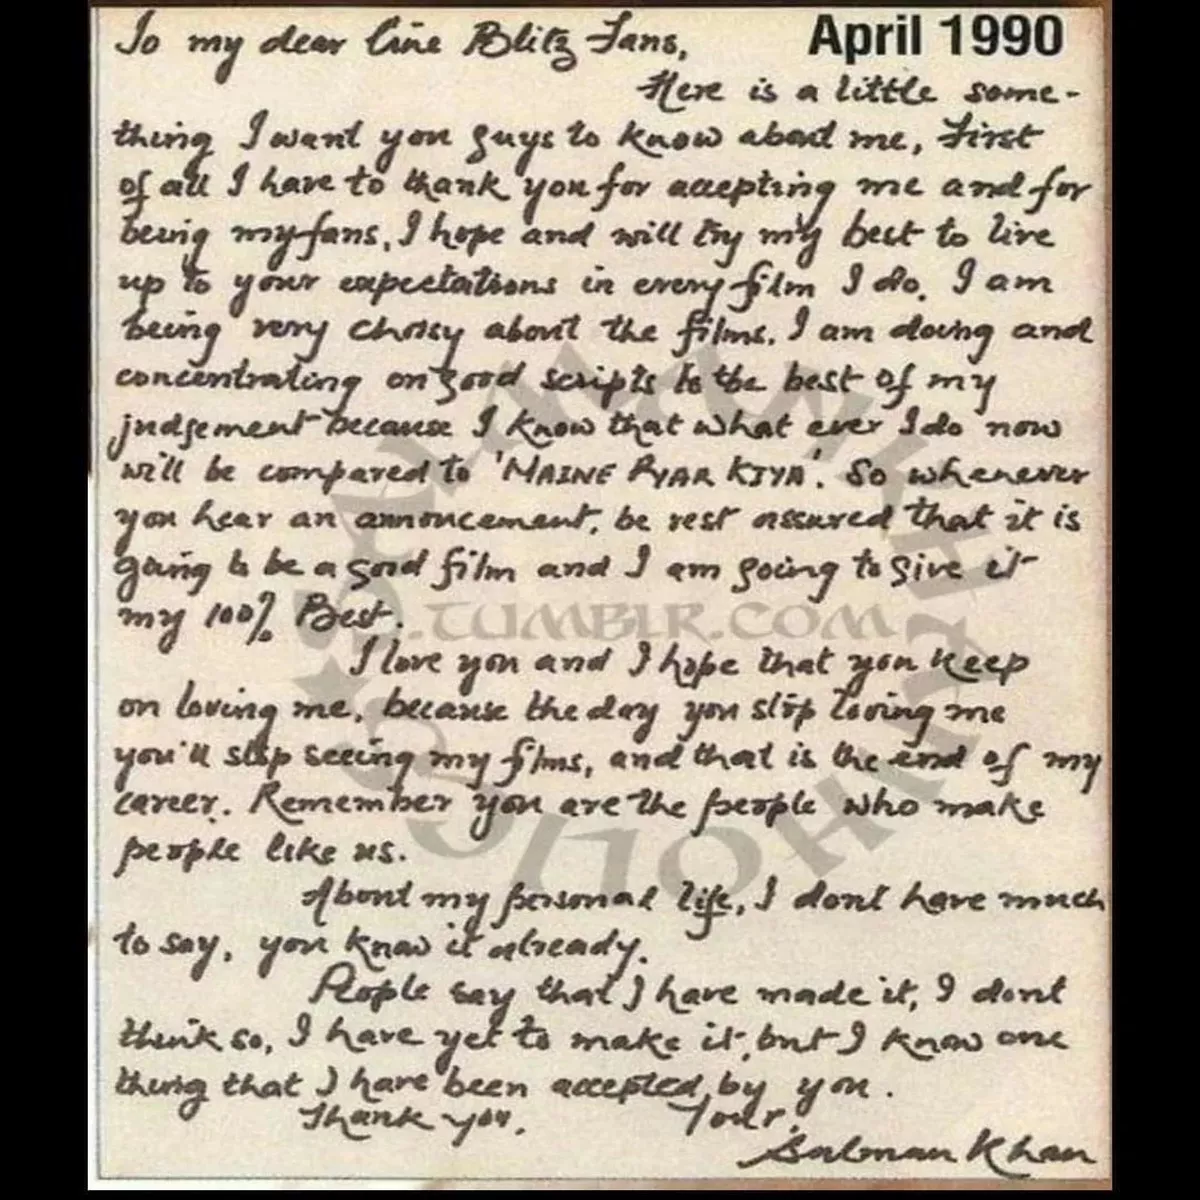 To my dear Cine Blitz Fans,
April 1990
Here is a little some-
thing I want you guys to know about me, First
of all I have to thank you for accepting me and for
being my fans, I hope and will try my best to live
up to your expectations in every film I do. I am
being very choisy about the films. I am doing and
concentrating on good scripts to the best of my
judgement because I know that what ever I do now
will be compared to 'MAINE PYAR KIYA'. So whenever
you hear an annoucement, be rest assured that it is
going to be a good film and I am going to give it
my 100% Best.
I love you and I hope that you keep
on loving me, because the day you stop loving me
you'll stop seeing my films, and that is the end of my
career. Remember you are the people who make
people like us.
About my personal life, I dont have much
to say, you know it already.
People say that I have made it, I dont
think so, I have yet to make it, but I know one
thing that I have been accepted by you.
Thank you. Your,
Salman Khan
.TUMBLR.COM